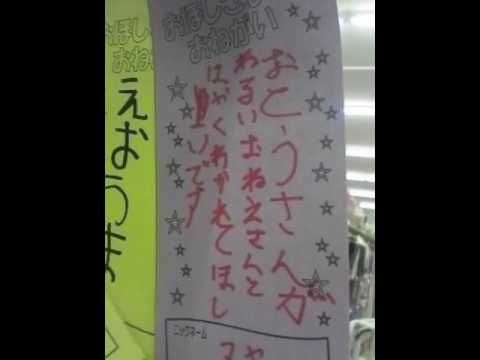 おほしさ
おねがい
おとうさんが
わるいおねえさんと
はやくわかれてほし
いです
ニックネーム
おほし
おね
えおうま